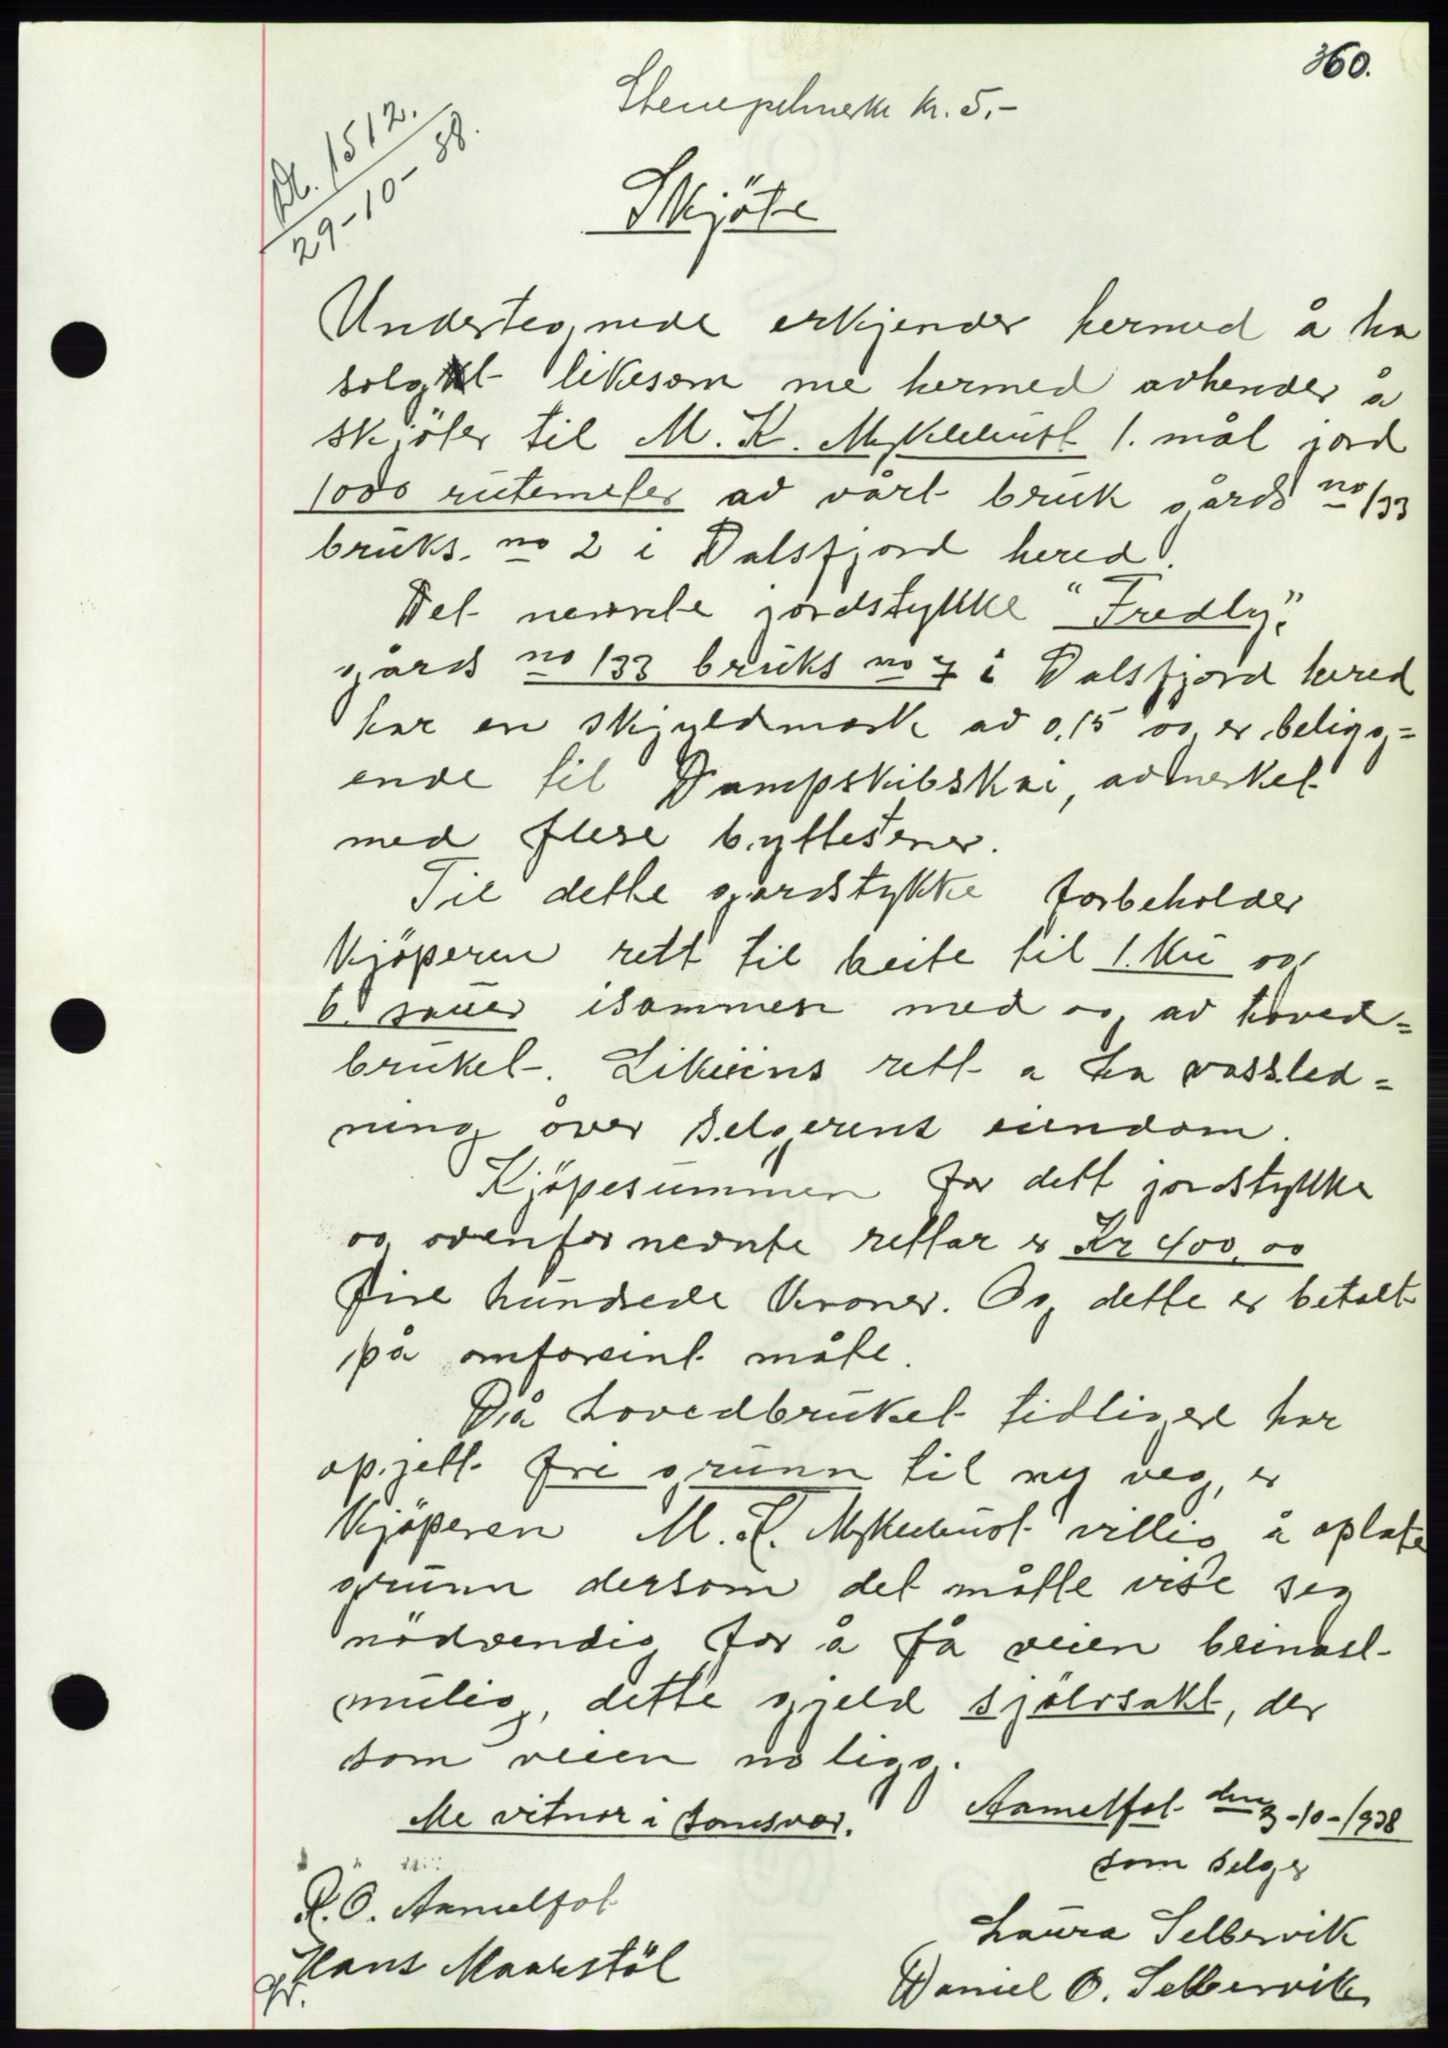 360.
Stempelmerke kr. 5.-
Nr. 1512.
29-10-38.
Skjöte
Undertegnede erkjender hermed å ha
solgt likesom me hermed avhender å
skjöter til M. K. Myklebust 1. mål jord
1000 rutemeter av vårt bruk gårds no 133
bruks. no 2 i Dalsfjord hered.
Det nevnte jordstykke "Fredly",
gårds no 133 bruks no 7 i Dalsfjord hered
har en skjyldmark av 0,15 og er beligg=
ende til Dampskibskai, avmerket
med flere byttesener.
Til dette gordstykke forbeholder
Kjöperen rett til beite til 1. Ku og
6. sauer isammen med og av hoved=
bruket. Likeeins rett a ha vassled=
ning över selgerens eiendom.
Kjöpesummen for dett jordstykke
og ovenfor nevnte rettar er Kr 400,00
fire hundrede Kroner. Og dette er betalt
på omforeint måte.
Då hovedbruket tidligere har
opjett fri grunn til ny veg, er
Kjöperen M. K. Myklebust villig å oplate
grunn dersom det måtte vise seg
nödvendig for å få veien beinast
mulig, dette gjeld sjölvsakt, der
som veien no ligg.
Me vitnor i samsvar.
Aamelfot den 3-10-1938
som selger
R. O. Aamelfot
Laura Selbervik
Hans Maarstöl
Daniel O. Selbervik